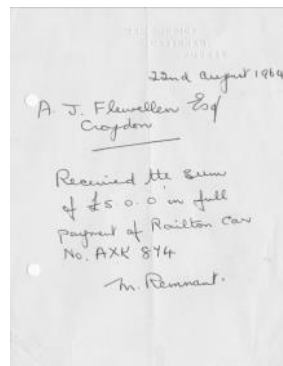 22nd August 1964
A. J. Flewellen Esq
Croydon
Received the sum
of £5.0.0 in full
payment of Railton Car
No. AXK 874
M. Remnant.